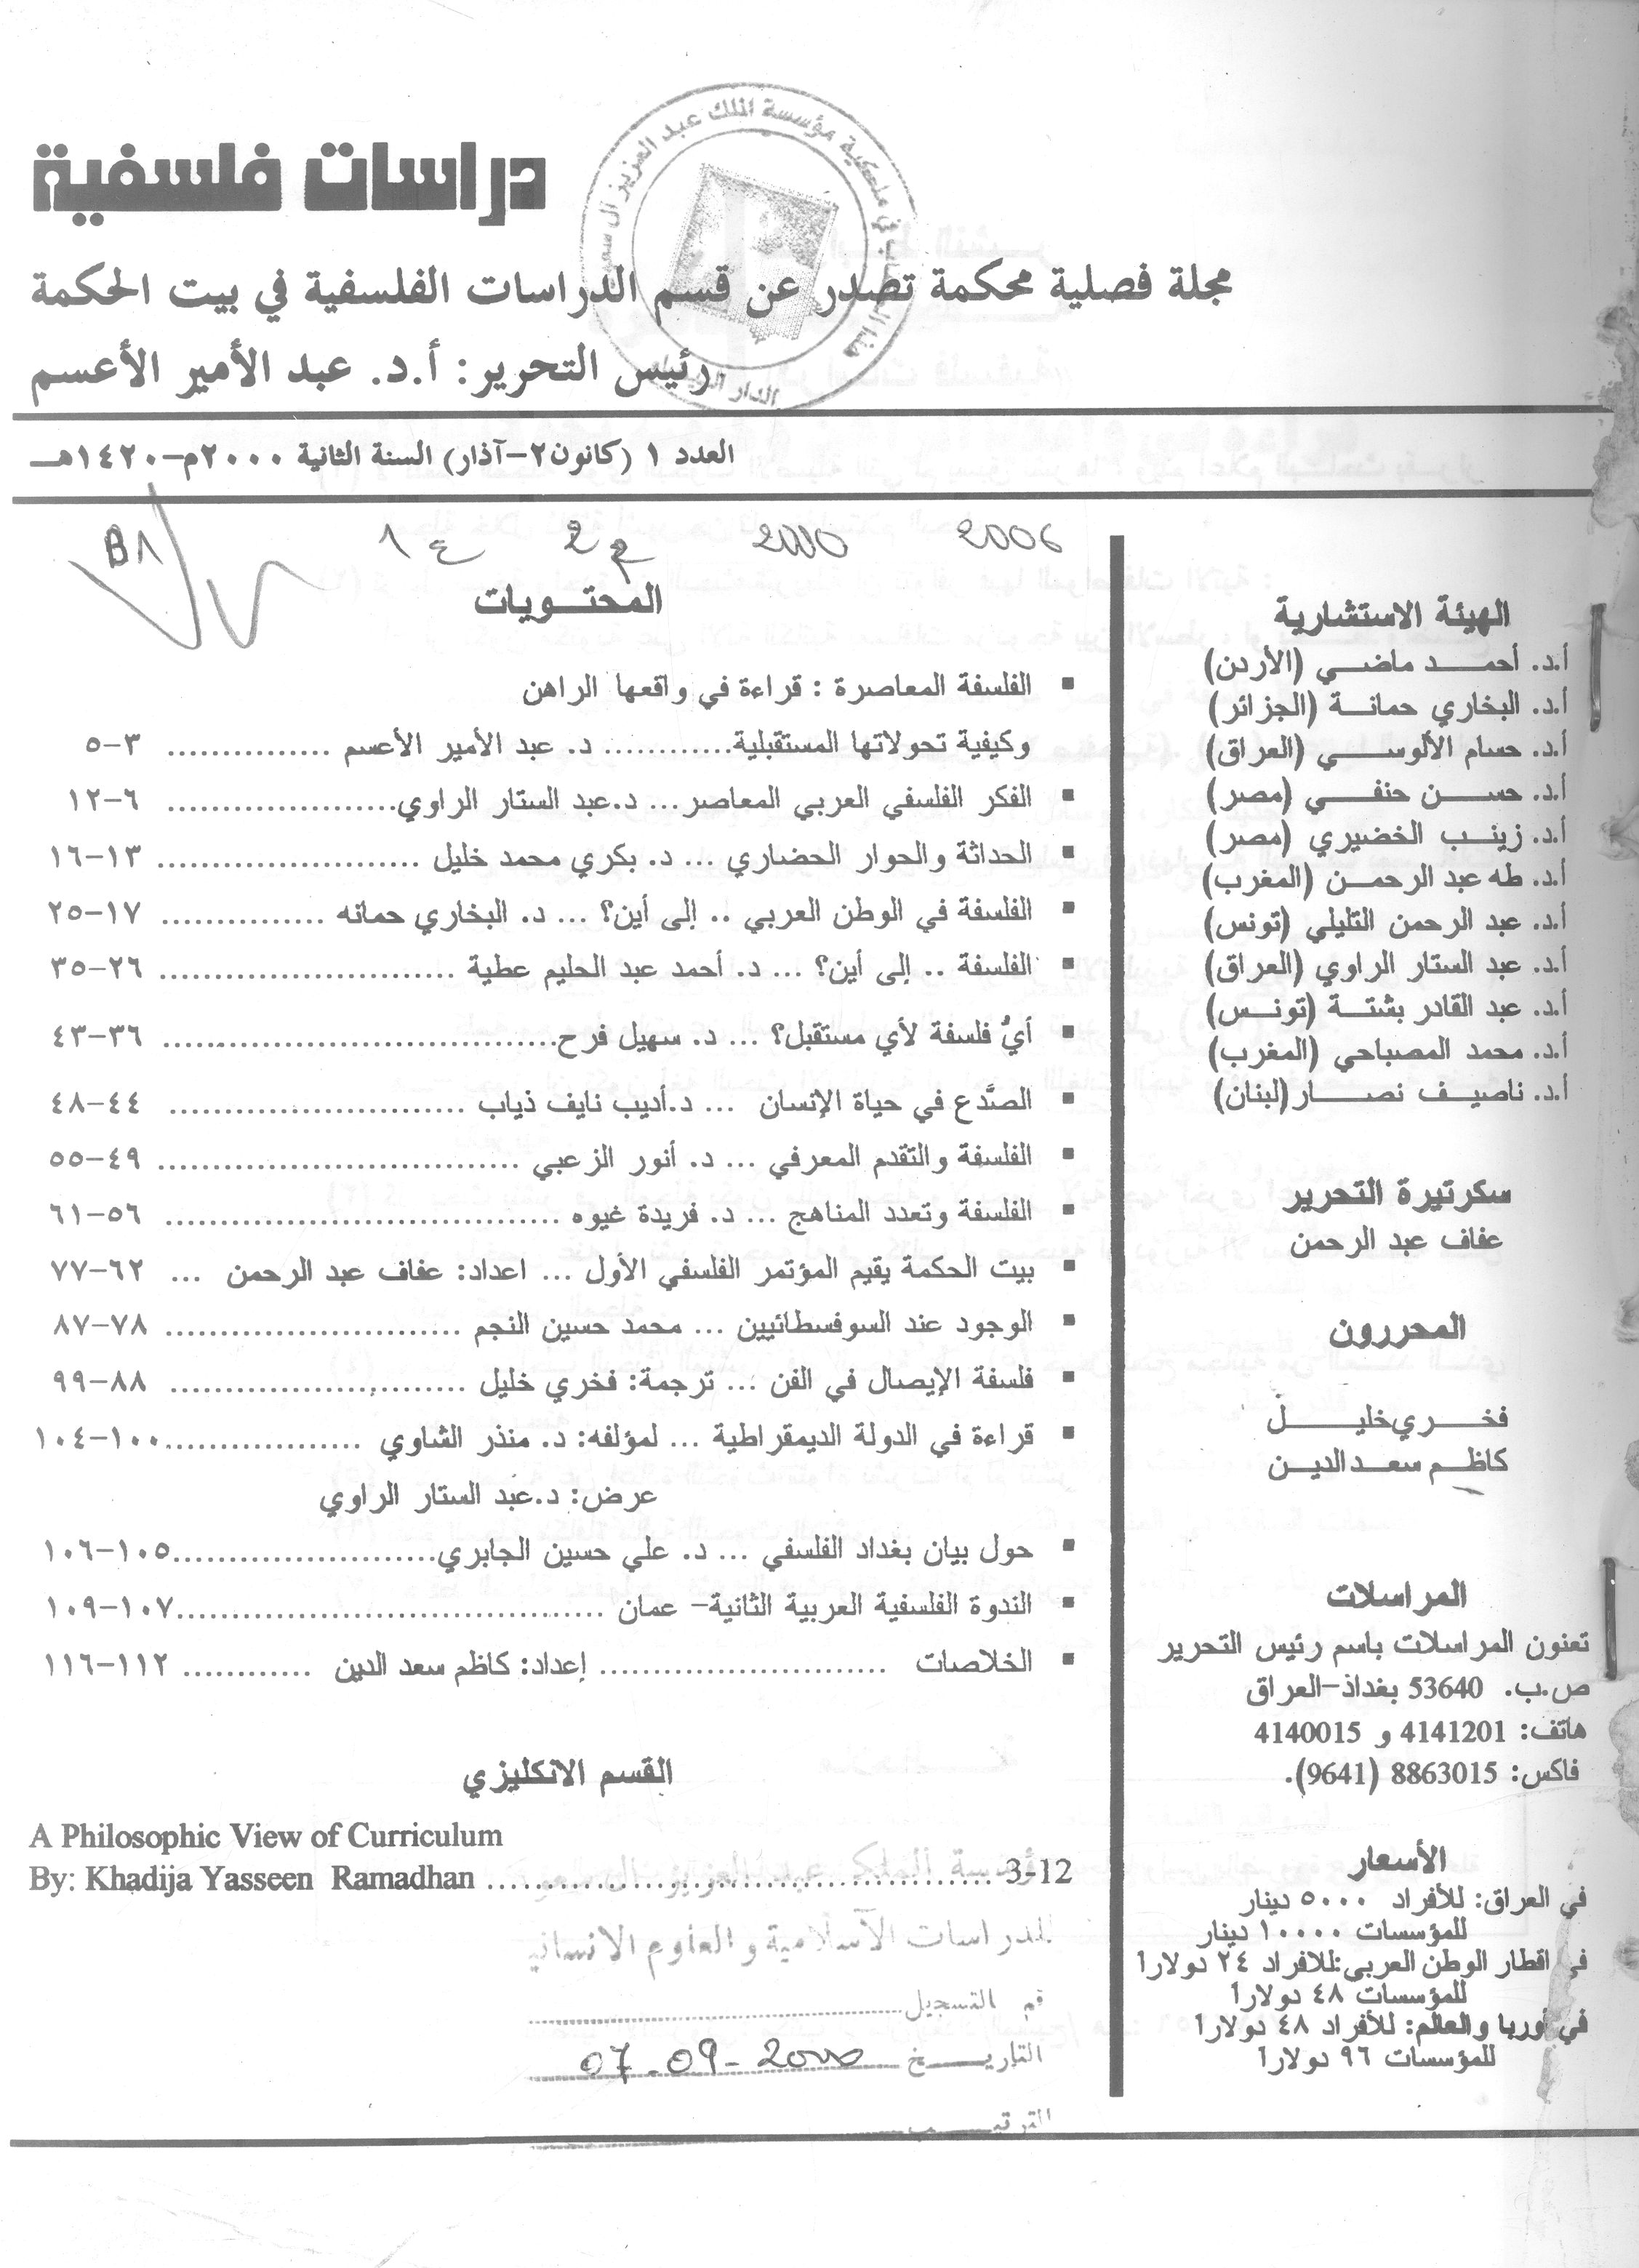 دراسات فلسفية
مجلة فصلية محكمة تصدر عن قسم الدراسات الفلسفية في بيت الحكمة
رئيس التحرير: أ.د. عبد الأمير الأعسم
العدد ١ (كانون٢-آذار) السنة الثانية ٢٠٠٠م-١٤٢٠هـ
B1 1 ع 2 2000 2006
الهيئة الاستشارية
أ.د. أحمد ماضي (الأردن)
أ.د. البخاري حمانة (الجزائر)
أ.د. حسام الألوسي (العراق)
أ.د. حسن حنفي (مصر)
أ.د. زينب الخضيري (مصر)
أ.د. طه عبد الرحمن (المغرب)
أ.د. عبد الرحمن التليلي (تونس)
أ.د. عبد الستار الراوي (العراق)
أ.د. عبد القادر بشتة (تونس)
أ.د. محمد المصباحي (المغرب)
أ.د. ناصيف نصار (لبنان)
سكرتيرة التحرير
عفاف عبد الرحمن
المحررون
فخري خليل
كاظم سعد الدين
المراسلات
تعنون المراسلات باسم رئيس التحرير
ص.ب. 53640 بغداد-العراق
هاتف: 4141201 و 4140015
فاكس: 8863015 (9641).
الأسعار
في العراق: للأفراد ٥٠٠٠ دينار
للمؤسسات ١٠٠٠٠ دينار
في اقطار الوطن العربي:للافراد ٢٤ دولارا
للمؤسسات ٤٨ دولارا
في أوربا والعالم: للأفراد ٤٨ دولارا
للمؤسسات ٩٦ دولارا
المحتويات
▪ الفلسفة المعاصرة : قراءة في واقعها الراهن
وكيفية تحولاتها المستقبلية............ د. عبد الأمير الأعسم ............... ٣-٥
▪ الفكر الفلسفي العربي المعاصر... د.عبد الستار الراوي...................... ٦-١٢
▪ الحداثة والحوار الحضاري ... د. بكري محمد خليل ......................... ١٣-١٦
▪ الفلسفة في الوطن العربي .. إلى أين؟ ... د. البخاري حمانه ............... ١٧-٢٥
▪ الفلسفة .. إلى أين؟ ... د. أحمد عبد الحليم عطية ............................ ٢٦-٣٥
▪ أيُّ فلسفة لأي مستقبل؟ ... د. سهيل فرح...................................... ٣٦-٤٣
▪ الصَّدع في حياة الإنسان ... د.أديب نايف ذياب ............................ ٤٤-٤٨
▪ الفلسفة والتقدم المعرفي ... د. أنور الزعبي ................................... ٤٩-٥٥
▪ الفلسفة وتعدد المناهج ... د. فريدة غيوه ...................................... ٥٦-٦١
▪ بيت الحكمة يقيم المؤتمر الفلسفي الأول ... اعداد: عفاف عبد الرحمن ... ٦٢-٧٧
▪ الوجود عند السوفسطائيين ... محمد حسين النجم ............................ ٧٨-٨٧
▪ فلسفة الإيصال في الفن ... ترجمة: فخري خليل ............................ ٨٨-٩٩
▪ قراءة في الدولة الديمقراطية ... لمؤلفه: د. منذر الشاوي ...................١٠٠-١٠٤
عرض: د.عبد الستار الراوي
▪ حول بيان بغداد الفلسفي ... د. علي حسين الجابري.........................١٠٥-١٠٦
▪ الندوة الفلسفية العربية الثانية- عمان .........................................١٠٧-١٠٩
▪ الخلاصات ........................... إعداد: كاظم سعد الدين ............ ١١٢-١١٦
القسم الانكليزي
A Philosophic View of Curriculum
By: Khadija Yasseen Ramadhan ................................................ 3-12
للدراسات الآسلامية والعلوم الانساني
قم التسجيل
التاريخ 07-09-2000
الترتيب